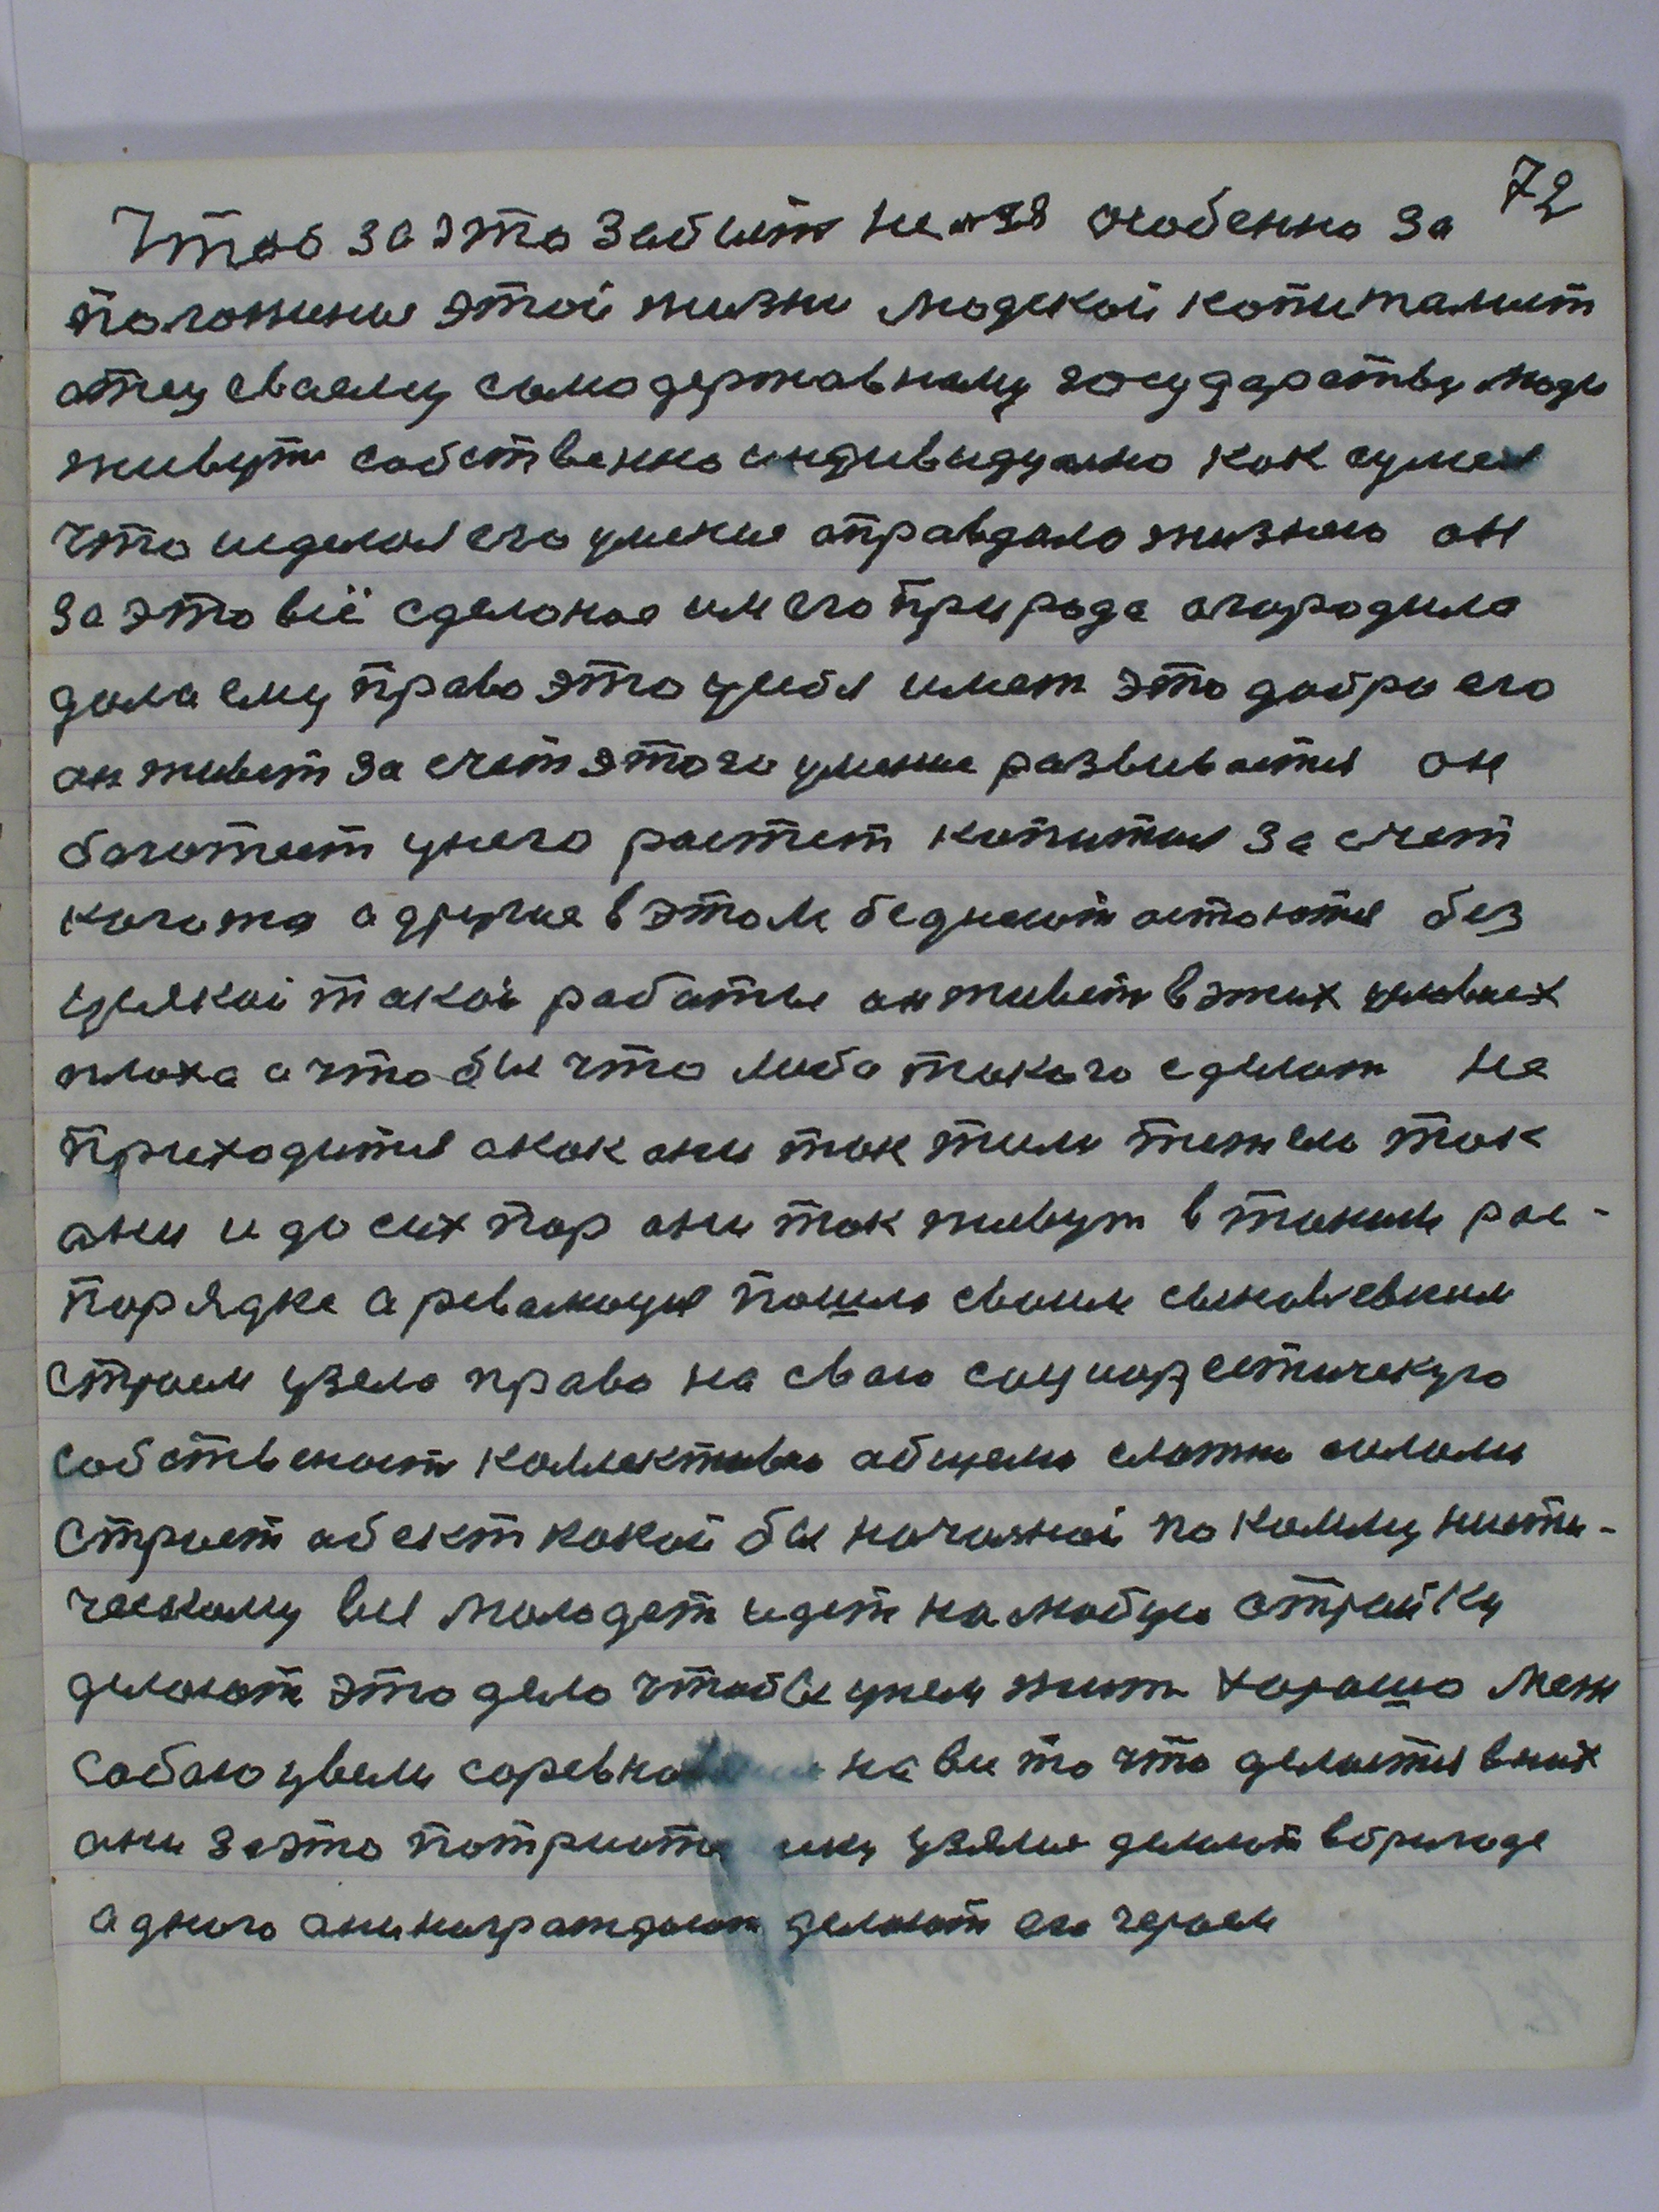 72
Чтоб за это забыть нельзя особенно за
положение этой жизни людской копиталист
отец своему самодержавному государству люди
живут собственно индивидуално как сумел
что и делал его умение оправдало жизнею он
за это всё сделоное им его природа огородила
дала ему право это усибя имет это добро его
он живет за счет этого умение развивается он
боготеет унего растет копитал за счет
кагото а другие в этом беднеют астоются без
усякой такой работы он живет в этих условиях
плохо а чтобы что либо такого сделат не
приходится а как они так жили тяжело так
они и до сих пор они так живут в таким рас-
порядке а революция пошла своим сыновлевским
строем узела право на сваю социолестическую
собственост коллективно абщеми силами
строет абект какой бы начожной по коммунисти-
ческому вся молодеж идет на любую стройку
делоют это дело чтобы унем жить хорошо меж
собаю увели соревно на все то что делается в них
они за это потриоты узялис делают в бригаде
аднаго они награждают делоют его героем